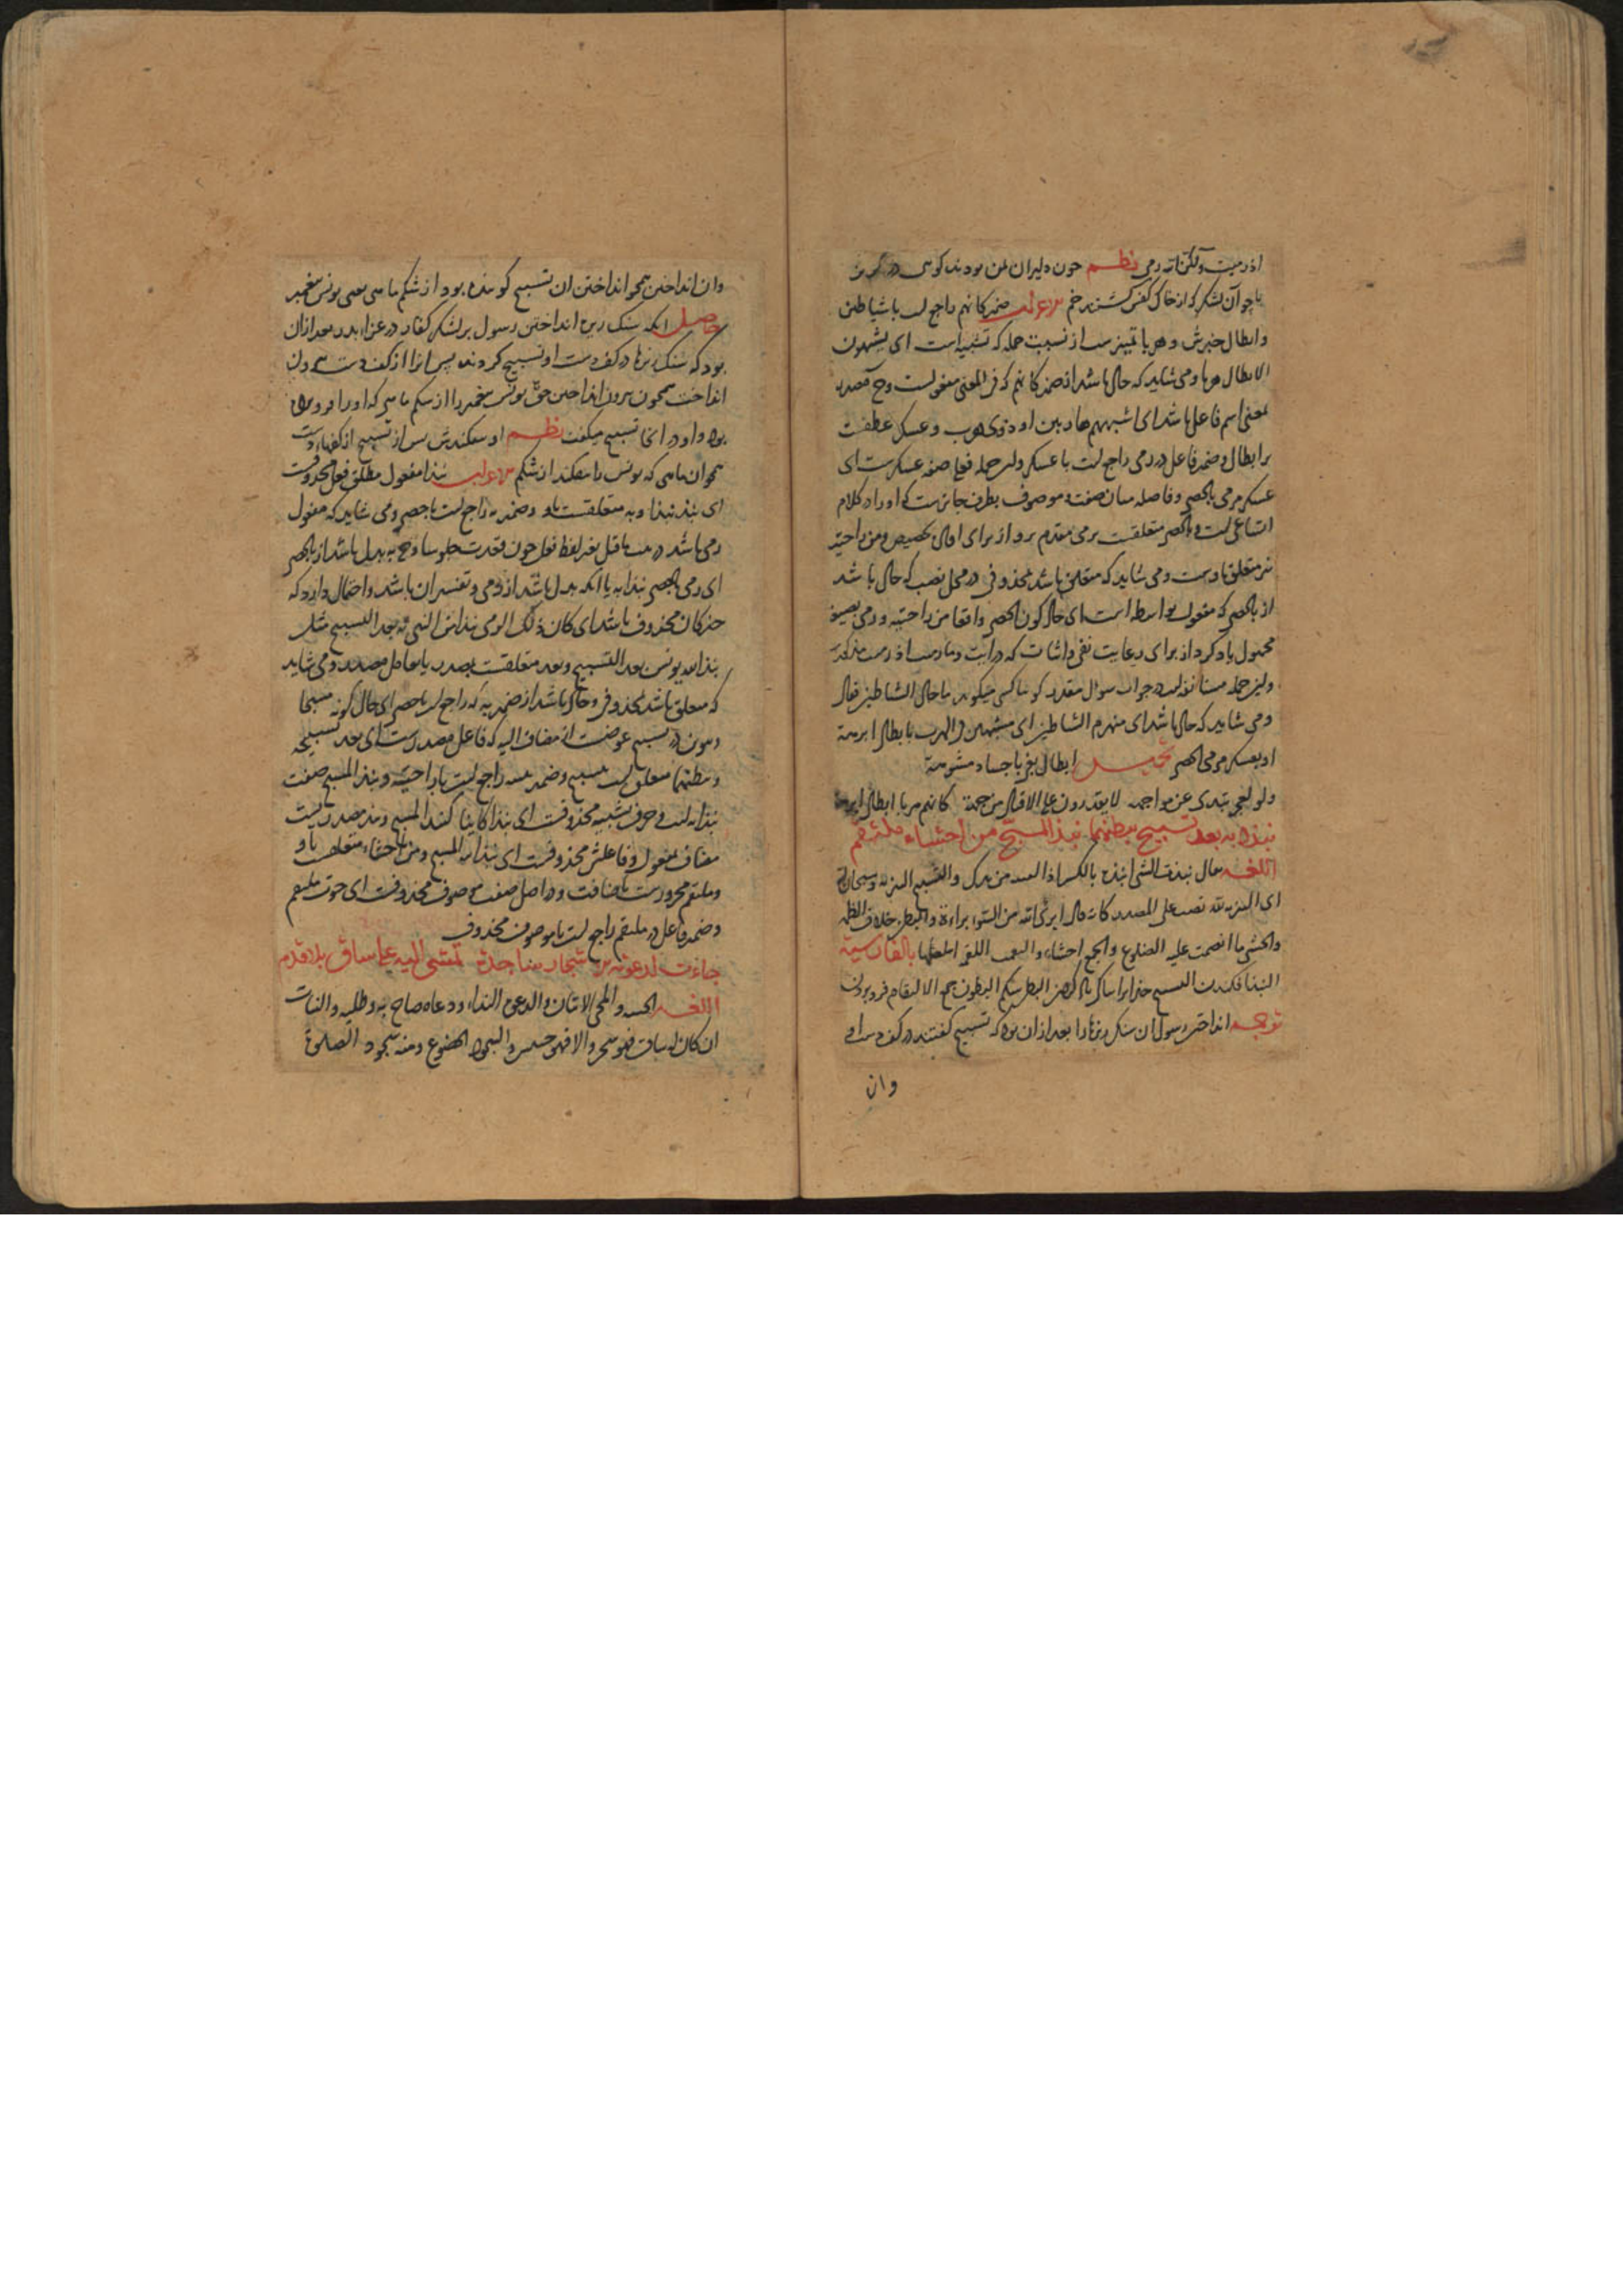 اذ رمیت ولکن الله رمی نظم چون دلیران یمن بودند کوهی در گریز
یا چو آن لشکر که از خاک کفش گشتند خم اعراب ضمیر کانهم راجع است با شیاطین
وابطال خبرش و هربا تمییزست از نسبت جمله که تشبیه است ای یشبهون
الابطال هربا و می شاید که حال باشد از ضمیر کانهم که فی المعنی مفعولست وح مصدر
بمعنی اسم فاعل باشد ای اشبههم هاربین او ذوی هرب و عسکر عطفست
بر ابطال و ضمیر فاعل در رمی راجع است با عسکر و این جمله فعلی صفه عسکرست ای
عسکر مرمی بالحصی و فاصله میان صفت و موصوف بظرف جایزست که او را در کلام
اتساعی است و بالحصی متعلقست برمی مقدم برو از برای افاده تخصیص و من راحتیه
نیز متعلق باوست و می شاید که متعلق باشد بمحذوفی در محل نصب که حال باشد
از بالحصی که مفعول بواسطه است ای حال کون الحصی واقعا من راحتیه و رمی بصیغه
مجهول یاد کرد از برای رعایت نفی و اثبات که در آیت وما رمیت اذ رمیت مذکورست
و این جمله مستانفه است در جواب سوال مقدر کویا کسی میکوید ما حال الشیاطین فقال
و می شاید که حال باشد ای منهزم الشیاطین ای مشبهین فی الهرب بابطال ابرهة
او بعسکر مرمی بالحصی تخمیس ابطال بغی باجساد مشومة
ولو لعی تبدی عن مواجهة لا یقدرون علی الاقبال من جهة کانهم هربا ابطال ابرهة
نبذا به بعد تسبیح ببطنهما نبذ المسبح من احشاء ملتقم
اللغه یقال نبذت الشی انبذه بالکسر اذا القیته من یدک والتسبیح التنزیه وسبحان الله
ای التنزیه لله نصب علی المصدر کانه قال ابرئ الله من السوء براءة والبطن خلاف الظهر
والحشی ما انضمت علیه الضلوع والجمع احشاء والتقمت اللقمة ابتلعتها بالفارسیة
النبذ افکندن التسبیح خدایرا بپاکی یاد کردن البطن شکم البطون جمع الالتقام فرو بردن
ترجمه انداختن رسول ان سنک ریزها را بعد ازان بود که تسبیح کفتند در کف دست او
وان
وان انداختن همچو انداختن ان تسبیح کوینده بود از شکم ماهی یعنی یونس پیغمبر
حاصل انکه سنک ریزه انداختن رسول بر لشکر کفار در غزاء بدر بعد ازان
بود که سنک ریزها در کف دست او تسبیح کردند پس انرا از کف دست بیرون
انداخت همچون بیرون انداختن حق یونس پیغمبر را از شکم ماهی که او را فرو برده
بود و او در انجا تسبیح میکفت نظم او بیفکندش پس از تسبیح از کفهاء دست
همچو ان ماهی که یونس را بیفکند از شکم اعراب نبذا مفعول مطلق فعل محذوفست
ای نبذ نبذا و به متعلقست باو و ضمیر به راجع است با حصی و می شاید که مفعول
رمی باشد در بیت ماقبل بغیر لفظ فعل چون قعدت جلوسا وح به بدل باشد از بالحصی
ای رمی بالحصی نبذا به یا انکه بدل باشد از رمی و تفسیر ان باشد و احتمال دارد که
خبر کان محذوف باشد ای کان ذلک الرمی نبذا من النبی به بعد التسبیح مثل
نبذ الله یونس بعد التسبیح و بعد متعلقست بمصدر یا بعامل مصدر و می شاید
که متعلق باشد بمحذوفی و حال باشد از ضمیر به که راجع است با حصی ای حال کونه مسبحا
و تنوین در تسبیح عوضست از مضاف الیه که فاعل مصدرست ای بعد تسبیحه
و ببطنهما متعلق است بتسبیح و ضمیر تثنیه راجع است با راحتیه و نبذ المسبح صفت
نبذا به است و حرف تشبیه محذوفست ای نبذا کاینا کنبذ المسبح و نبذ مصدریست
مضاف بمفعول و فاعلش محذوفست ای نبذ الله المسبح و من احشاء متعلقست باو
و ملتقم مجرورست باضافت و در اصل صفت موصوف محذوفست ای حوت ملتقم
و ضمیر فاعل در ملتقم راجع است با موصوف محذوف
جاءت لدعوته الاشجار ساجدة تمشی الیه علی ساق بلا قدم
اللغه الجیئة والمجی الاتیان والدعوة النداء ودعاه صاح به وطلبه والنبات
ان کان له ساق فهو شجر والا فهو حشیش والسجود الخضوع ومنه سجود الصلوة